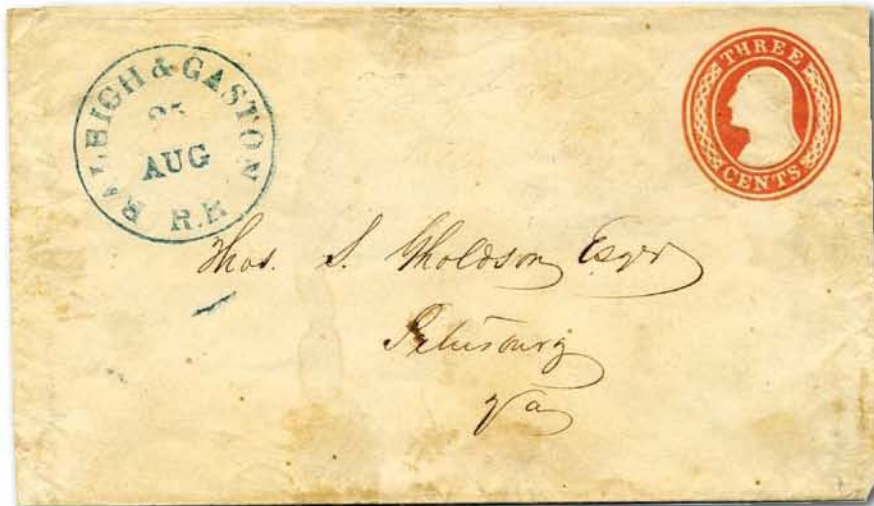 RALEIGH & GASTON
25
AUG
R.R
THREE
CENTS
Thos. S. Gholdson Esqr
Petersburg
Va